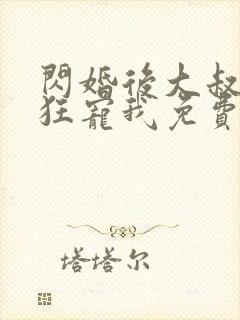 閃婚後大叔
狂寵我免費
塔塔尔